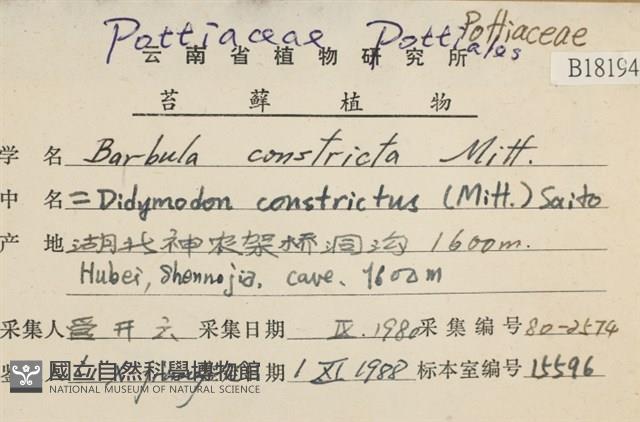 Pottiaceae Pottiales Pottiaceae
云南省植物研究所
B18194
苔藓植物
学名 Barbula constricta Mitt.
中名 = Didymodon constrictus (Mitt.) Saito
产地 湖北神农架桥洞沟 1600m.
Hubei, Shennojia, cave, 1600m
采集人 开云 采集日期 IX.1980 采集编号 80-2574
鉴 日期 1 XI 1988 标本室编号 15596
國立自然科學博物館
NATIONAL MUSEUM OF NATURAL SCIENCE